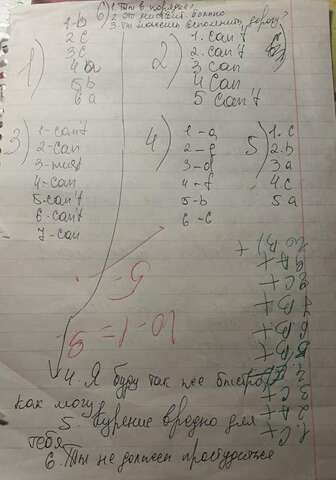 6) 1. Ты в порядке?
2. Это выглядит больно
3. Ты можешь вспомнить дорогу?
1)
1. b
2 c
3 c
4 a
5 b
6 a
2)
1. can't
2. can't
3 can
4 can
5 can't
3)
1-can't
2-can
3-must
4-can
5-can't
6-can't
7-can
4)
1-a
2-e
3-d
4-f
5-b
6-c
5)
1. c
2. b
3 a
4 c
5 a
5-
10-1=9
1. C+
2 A+
3 C+
5 B+
6 B+
7 B+
8 C+
9 A+
10 B)+
4. Я буду так же быстро
как могу
5. Курение вредно для
тебя
6. Ты не должен простудиться